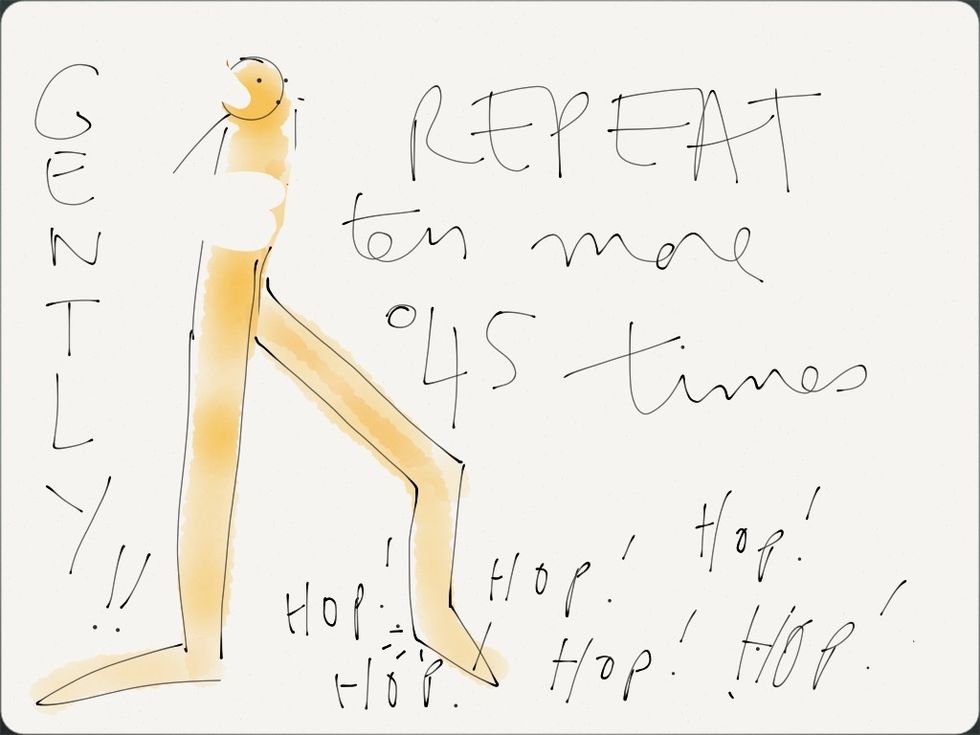 GENTLY!!
REPEAT
ten more
45 times
HOP!
HOP!
HOP!
HOP!
HOP!
HOP!